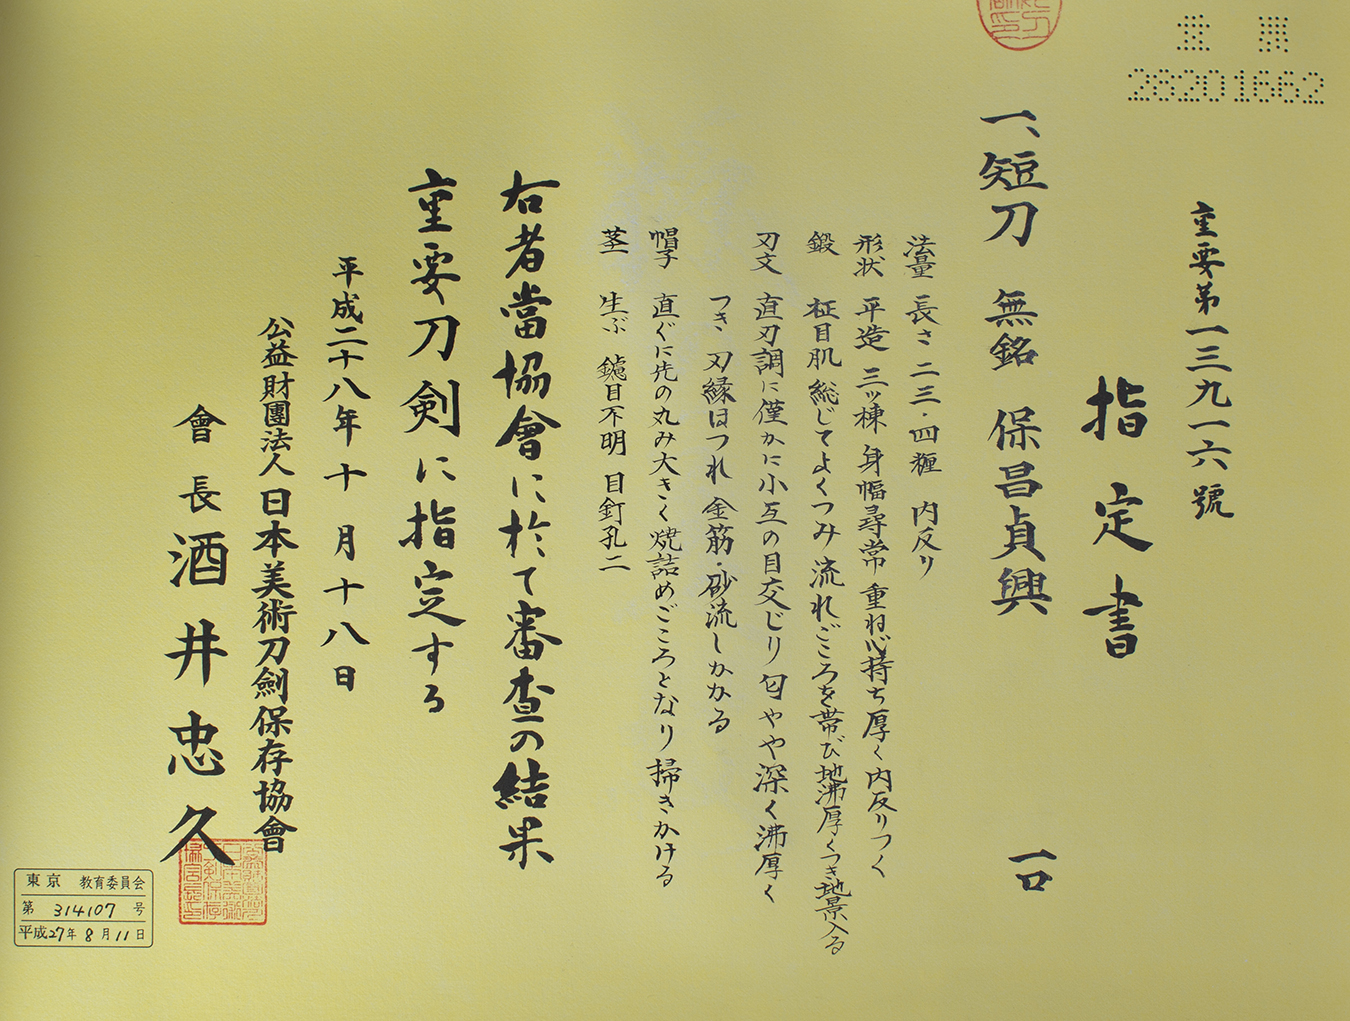 重要
28201662
重要第一三九一六號
指定書
一、短刀 無銘 保昌貞興 一口
法量 長さ 二三・四糎 内反り
形状 平造 三ッ棟 身幅尋常 重ね心持ち厚く 内反りつく
鍛 柾目肌 総じてよくつみ 流れごころを帯び 地沸厚くつき 地景入る
刃文 直刃調に僅かに小互の目交じり 匂やや深く 沸厚く
つき 刃縁ほつれ 金筋・砂流しかかる
帽子 直ぐに先の丸み大きく焼詰めごころとなり 掃きかける
茎 生ぶ 鑢目不明 目釘孔二
右者當協會に於て審査の結果
重要刀剣に指定する
平成二十八年十月十八日
公益財團法人日本美術刀劍保存協會
會長 酒井忠久
東京 教育委員会
第 314107 号
平成27年8月11日